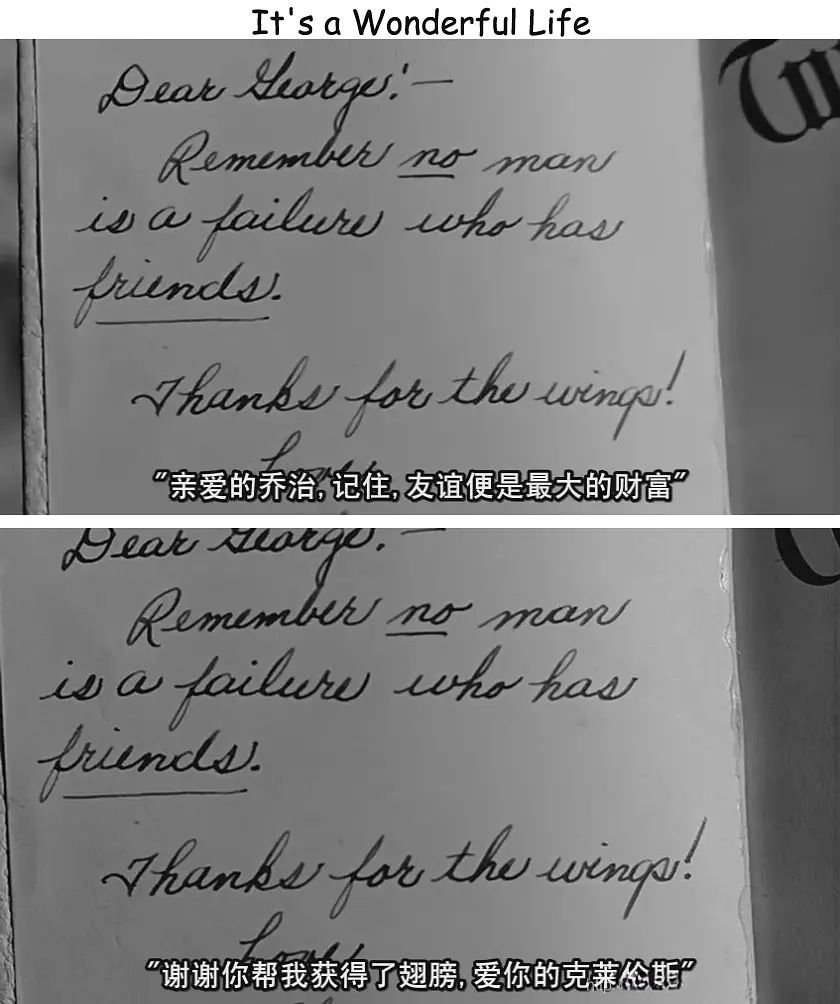 It's a Wonderful Life
Dear George:—
Remember no man
is a failure who has
friends.
Thanks for the wings!
Love
"亲爱的乔治, 记住, 友谊便是最大的财富"
Dear George:—
Remember no man
is a failure who has
friends.
Thanks for the wings!
Love
"谢谢你帮我获得了翅膀, 爱你的克莱伦斯"